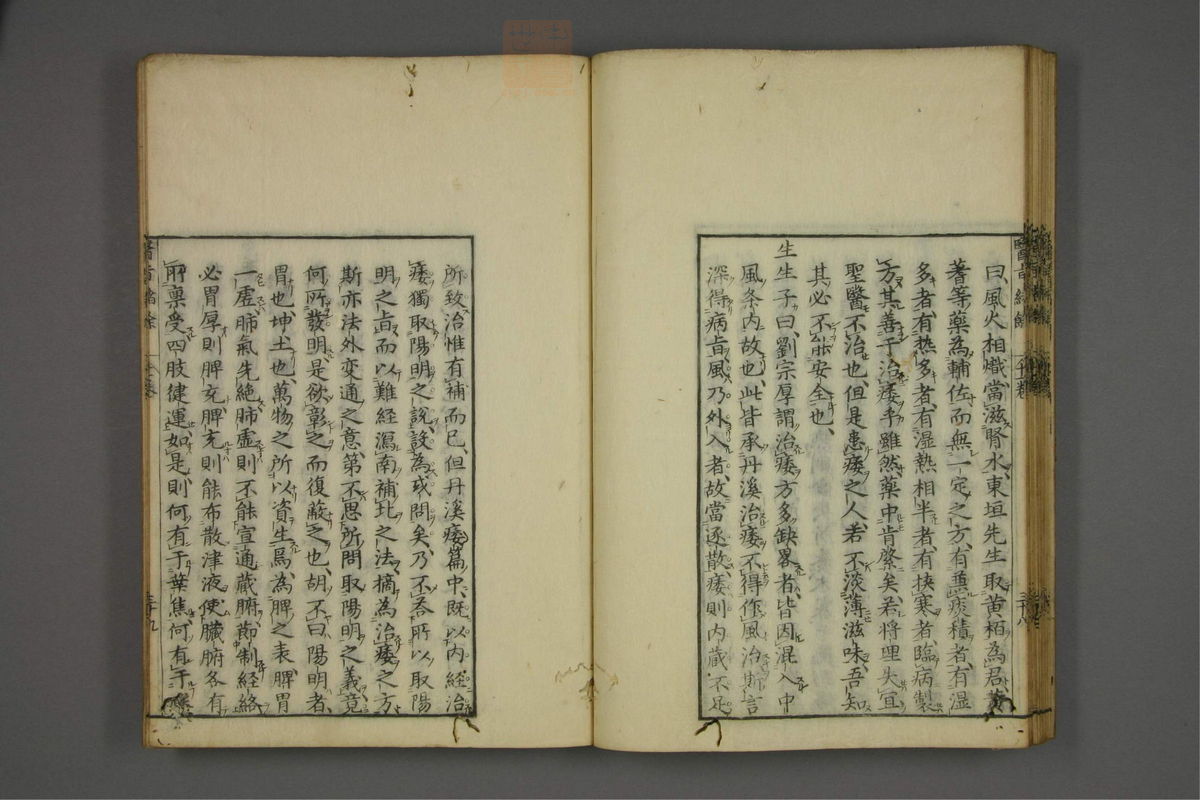 曰、風火相熾、當滋腎水、東垣先生取黃栢為君、黃
蓍等藥為輔佐、而無一定之方、有兼痰積者、有濕
多者、有热多者、有湿熱相半者、有挾寒者、臨病製
方、其善于治痿乎、雖然藥中肯綮矣、若將理失宜、
聖醫不治也、但是患痿之人、若不淡薄滋味、吾知
其必不能安全也、
生生子曰、劉宗厚謂治痿方多缺畧者、皆因混入中
風条内故也、此皆承丹溪治痿不得作風治斯言
深得病旨、風乃外入者、故當逐散、痿則内蔵不足
所致、治惟有補而已、但丹溪痿篇中、既以内經治
痿獨取陽明之說、設為或問矣、乃不荅所以取陽
明之旨、而以難經瀉南補北之法、摘為治痿之方、
斯亦法外変通之意、第不思所問取陽明之義、竟
何所發明、是欲彰之而復蔽之也、胡不曰陽明者、
胃也、坤土也、萬物之所以資生焉、為脾之表、脾胃
一虛、肺氣先絶、肺虛則不能宣通蔵腑、節制經絡、
必胃厚則脾充、脾充則能布散津液、使臟腑各有
所稟受、四肢健運、如是則何有于葉焦、何有于
醫旨緒餘
三十八
三十九